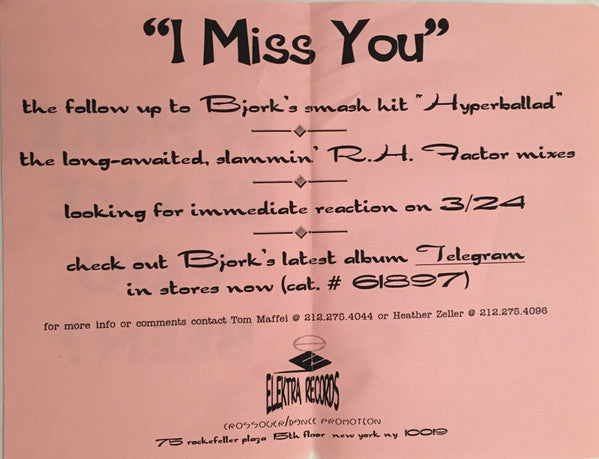 “I Miss You”
the follow up to Bjork's smash hit "Hyperballad"
the long-awaited, slammin' R.H. Factor mixes
looking for immediate reaction on 3/24
check out Bjork's latest album Telegram
in stores now (cat. # 61897)
for more info or comments contact Tom Maffei @ 212.275.4044 or Heather Zeller @ 212.275.4096
ELEKTRA RECORDS
CROSSOVER/DANCE PROMOTION
75 rockefeller plaza 15th floor new york ny 10019